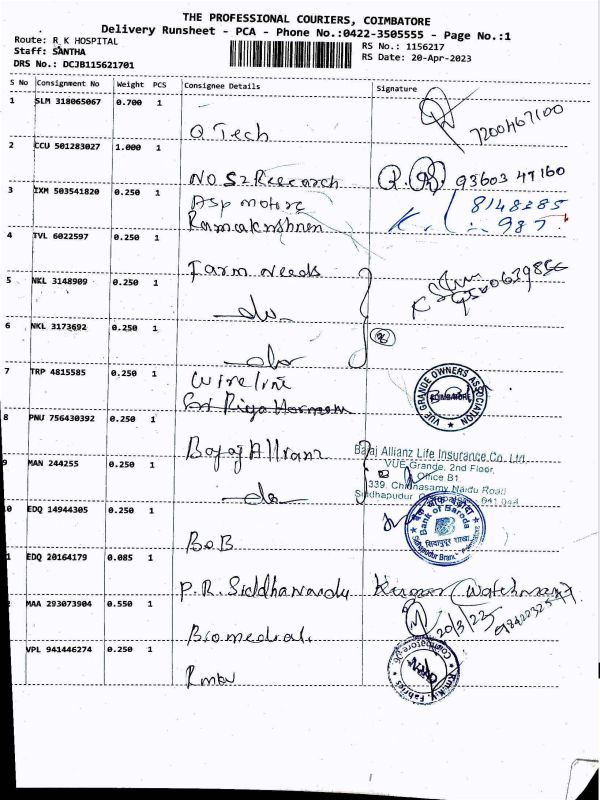 THE PROFESSIONAL COURIERS, COIMBATORE
Delivery Runsheet - PCA - Phone No.:0422-3505555 - Page No.:1
Route: R K HOSPITAL
Staff: SANTHA
DRS No.: DCJB115621701
RS No.: 1156217
RS Date: 20-Apr-2023
S No Consignment No Weight PCS Consignee Details Signature
1 SLM 318065067 0.700 1
Q Tech
7200467100
2 CCU 501283027 1.000 1
93603 47160
3 IXM 503541820 0.250 1
Asp motors
Ramakrishnan
8148285
987
4 TVL 6022597 0.250 1
Farm needs
5 NKL 3148909 0.250 1
do
6 NKL 3173692 0.250 1
do
7 TRP 4815585 0.250 1
wireline
VUE GRANDE OWNERS ASSOCIATION
COIMBATORE
8 PNU 756430392 0.250 1
Bajaj Allianz
Bajaj Allianz Life Insurance Co. Ltd.
VUE Grande, 2nd Floor,
Office B1
339, Chinnasamy Naidu Road
9 MAN 244255 0.250 1
do
10 EDQ 14944305 0.250 1
B.O.B
बैंक ऑफ़ बड़ौदा
Bank of Baroda
सिद्धापुदुर शाखा
1 EDQ 20164179 0.085 1
P.R. Siddha Naidu
Kumar (watchman)
2 MAA 293073904 0.550 1
Biomedical
VPL 941446274 0.250 1
Rmkv